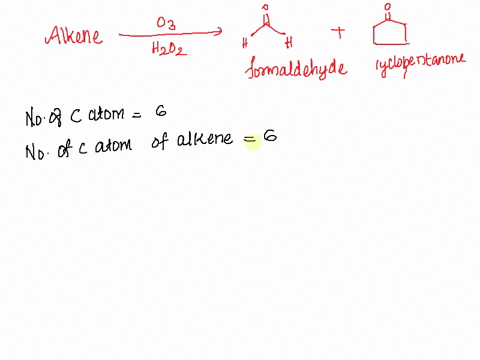 O
O
Alkene O3 H2O2 H H +
formaldehyde cyclopentanone
No. of C atom = 6
No. of C atom of alkene = 6